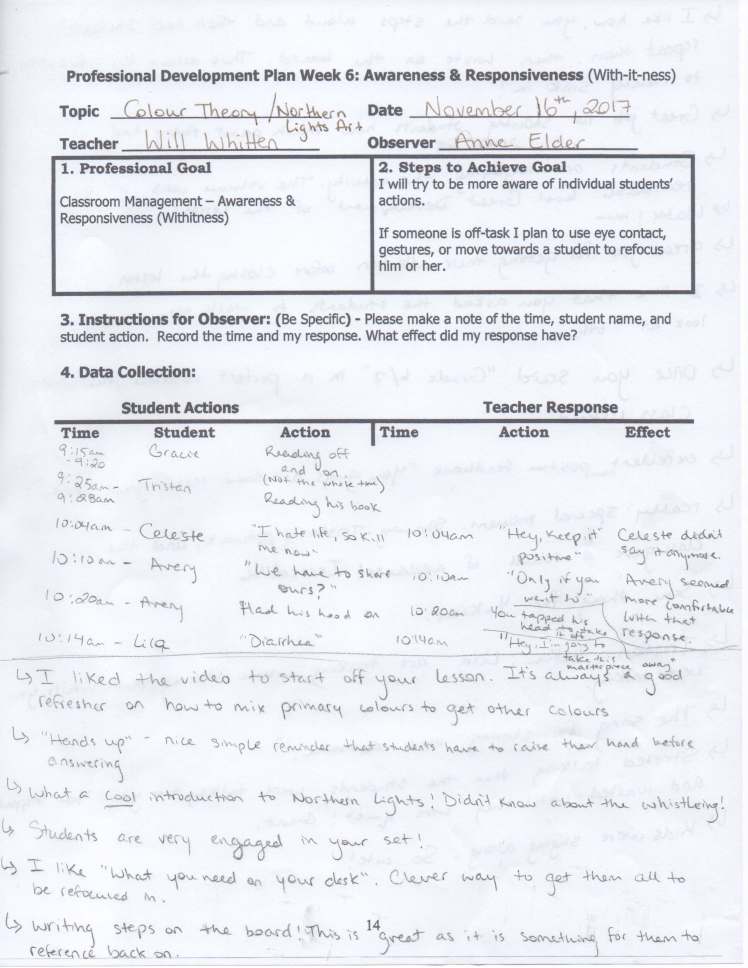 Professional Development Plan Week 6: Awareness & Responsiveness (With-it-ness)
Topic Colour Theory/Northern Lights Art Date November 16th, 2017
Teacher Will Whitten Observer Anne Elder
1. Professional Goal
Classroom Management – Awareness &
Responsiveness (Withitness)
2. Steps to Achieve Goal
I will try to be more aware of individual students'
actions.
If someone is off-task I plan to use eye contact,
gestures, or move towards a student to refocus
him or her.
3. Instructions for Observer: (Be Specific) - Please make a note of the time, student name, and
student action. Record the time and my response. What effect did my response have?
4. Data Collection:
Student Actions Teacher Response
Time Student Action Time Action Effect
9:15am - 9:20 Gracie Reading off and on. (Not the whole time)
9:25am - 9:28am Tristan Reading his book
10:04am - Celeste "I hate life, so kill me now" 10:04am "Hey, keep it positive" Celeste didn't say it anymore.
10:10am - Avery "We have to share ours?" 10:10am "Only if you want to." Avery seemed more comfortable with that response.
10:20am - Avery Had his head on 10:20am You tapped his head to take it off
10:14am - "Diarrhea" 10:14am "Hey, I'm going to take this masterpiece away"
↳ I liked the video to start off your lesson. It's always a good
refresher on how to mix primary colours to get other colours
↳ "Hands up" - nice simple reminder that students have to raise their hand before
answering
↳ What a cool introduction to Northern Lights! Didn't know about the whistleing!
↳ Students are very engaged in your set!
↳ I like "What you need on your desk". Clever way to get them all to
be refocused in.
↳ Writing steps on the board! This is great as it is something for them to
reference back on.
14